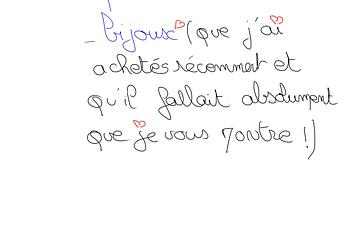 - bijoux (que j'ai
achetés récemment et
qu'il fallait absolument
que je vous montre !)